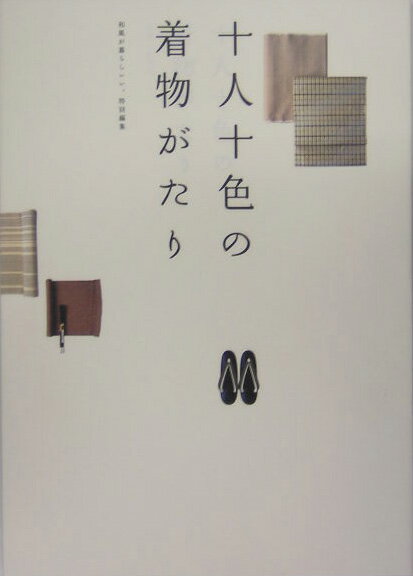 十人十色の
着物がたり
和風が暮らしいい。特別編集